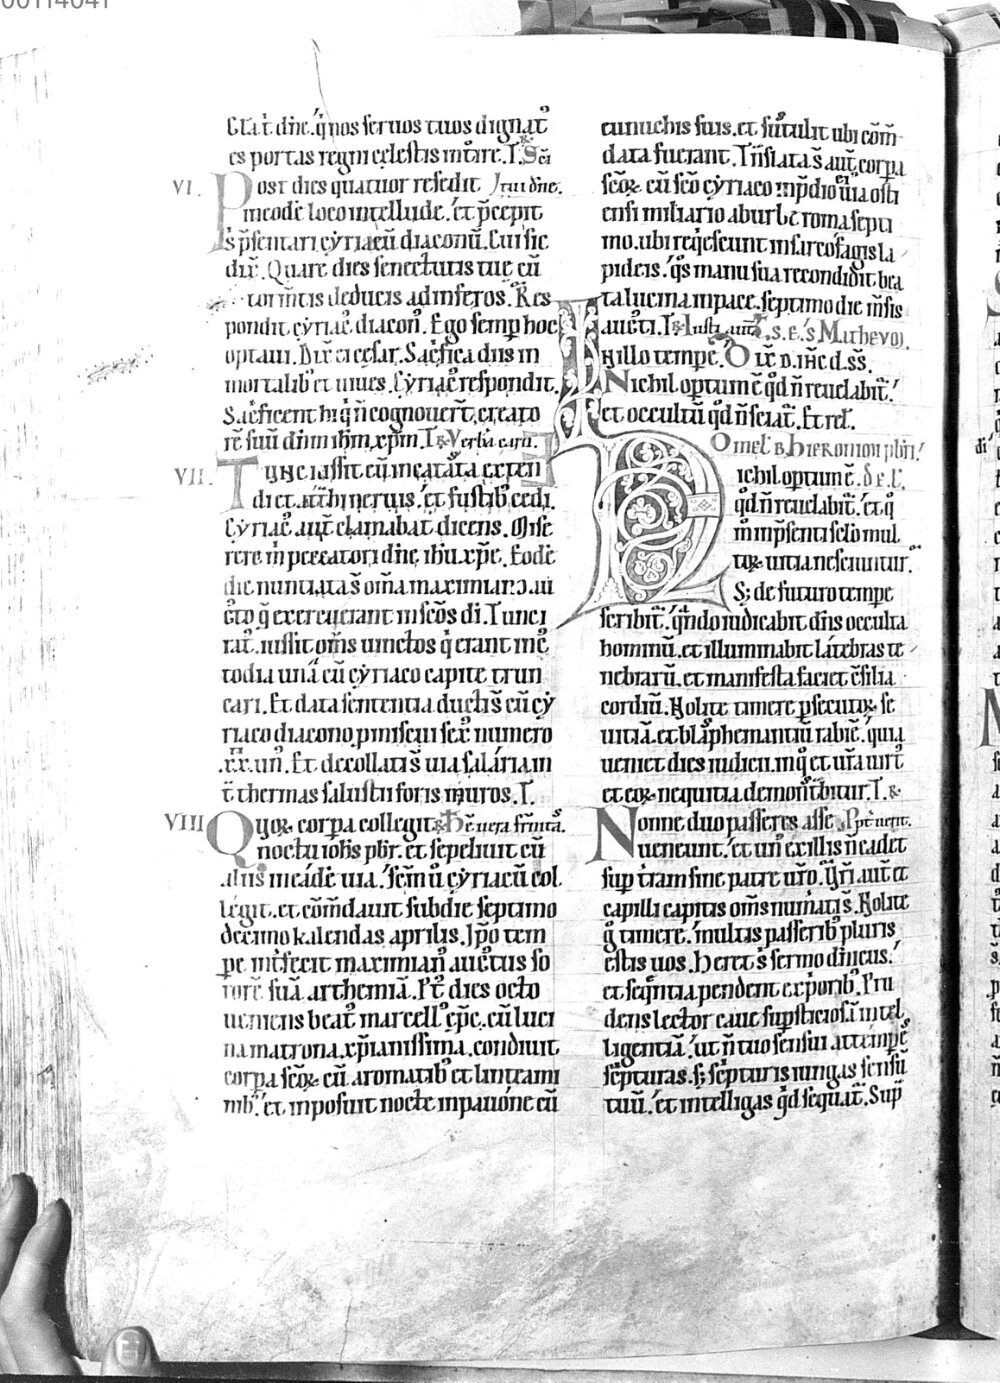 00114041
Gl̄at dn̄e. q̇ nos seruos tuos dignat᷒
es portas regni celestis intrare. T. Sc̄i
VI. Post dies quatuor resedit Intui dn̄e.
in eode loco intellude. et p̄cepit
s᷒ p̄sentari cyriacū diaconū. Cui sic
dix̄. Quare dies senectutis tuę cū
tormtis deducis ad inferos. Res
pondit cyriac᷒ diacon᷒. Ego semp hoc
optaui. Dix̄ ei cesar. Sac̓fica diis in
mortalib᷒ et uiues. Cyriac᷒ respondit.
Sac̓ficent hi q̓ n̄ cognouer̄t creato
rē suū dnm ihm xp̄m. T. R. Verbū caru.
VII. Tunc iussit eū in catasta exten
di et attrhi neruis. et fustib᷒ cedi.
Cyriac᷒ aut̄ clamabat dicens. Mise
rere m̓ peccatori dn̄e ihu xp̄e. Eodē
die nuntiata s̄ om̄a maximiano au
gto q̄ exercuerant in scōs di. Tunc i
rat᷒. iussit om̄s uinctos q̓ erant in c᷒
todia unā cū cyriaco capite trun
cari. Et data sententia duct᷒ s̄ cū cy
riaco diacono pmiscui sex᷒ numero
.xx.un. Et decollati s̄ uia salaria in
t̄ thermas salustii foris muros. T.
VIII Quor corpa collegit R. Hec uera frnitas.
noctu iohs pbr. et sepeliuit eū
aliis in eadē uia. Sc̄m ū cyriacū col
legit. et cōmdauit sub die septimo
decimo kalendas aprilis. Ipo tem
pe int̓fecit maximian᷒ auctus so
rorē suā arthemiā. Pt᷒ dies octo
ueniens beat᷒ marcell᷒ ep̄c. cū luci
na matrona xp̄ianissima. condiuit
corpa scōr cū aromatib᷒ et linteami
nib᷒. et imposuit nocte in pauone cū
eunuchis suis. et sustulit ubi cōm
data fuerant. Tn̄slata s̄ aut̄ corpa
scōr cū scō cyriaco in p̄dio ei᷒ uia osti
ensi miliario ab urbe roma septi
mo. ubi reqescunt in sarcofagis la
pideis. q̓s manu sua recondidit bea
ta lucina in pace. septimo die m̄sis
aucti. T. R. Iusti aut̄. S. E. S Mathevm.
IN illo tempe. Dix̄. D. ihc d. ss̄.
Nichil optum ē qd n̄ reuelabit᷒.
et occultū qd n̄ sciat᷒. Et rel̄.
Omel̄ B. Hieronimi pbri.
Nichil optum ē. D. E. C.
qd n̄ reuelabit᷒. et q̓
m̄ in psenti sclo mul
tor uitia nesciuntur.
S; de futuro tempe
scribit᷒. qn̄do iudicabit dn̄s occulta
hominū. et illuminabit latebras te
nebrarū. et manifesta faciet c̄silia
cordiū. Nolite timere psecutor se
uitiā. et blasphemantiū rabiē. quia
ueniet dies iudicii. in q̓ et ur̄a uirt᷒
et eor nequitia demonst̄bitur. T. R.
Nonne duo passeres asse Pp̄t uenr.
ueneunt. et un᷒ ex illis n̄ cadet
sup tram sine patre ur̄o. Vr̄i aut̄ et
capilli capitis om̄s numati s̄. Nolite
g᷒ timere. multis passerib᷒ pluris
estis uos. Heret s᷒ sermo diuicus.
et seqn̄tia pendent ex p̓orib᷒. Pru
dens lector caue supsticiosā intel
ligentiā. ut n̄ tuo sensui attempe
sc̓pturas. s; sc̓pturis iungas sensū
tuū. et intelligas qd sequat᷒. Sup